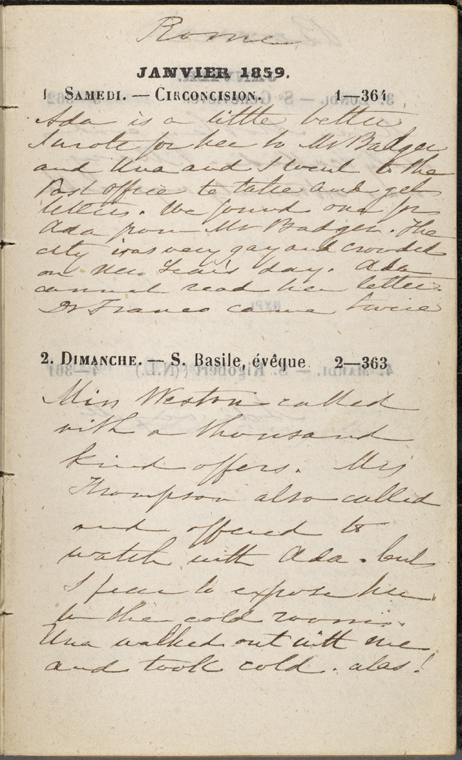 Rome
JANVIER 1859.
1 SAMEDI. — CIRCONCISION. 1—364
Ada is a little better
I wrote for her to Mr Badger
and Una and I went to the
Post Office to take and get
letters. We found one for
Ada from Mr Badger. The
city was very gay and crowded
on New Year's day. Ada
cannot read her letter.
Dr Franco came twice
2. DIMANCHE. — S. Basile, évêque 2—363
Miss Weston called
with a thousand
kind offers. Mrs
Thompson also called
and offered to
watch with Ada. but
I fear to expose her
in the cold room.
Una walked out with me
and took cold. alas!